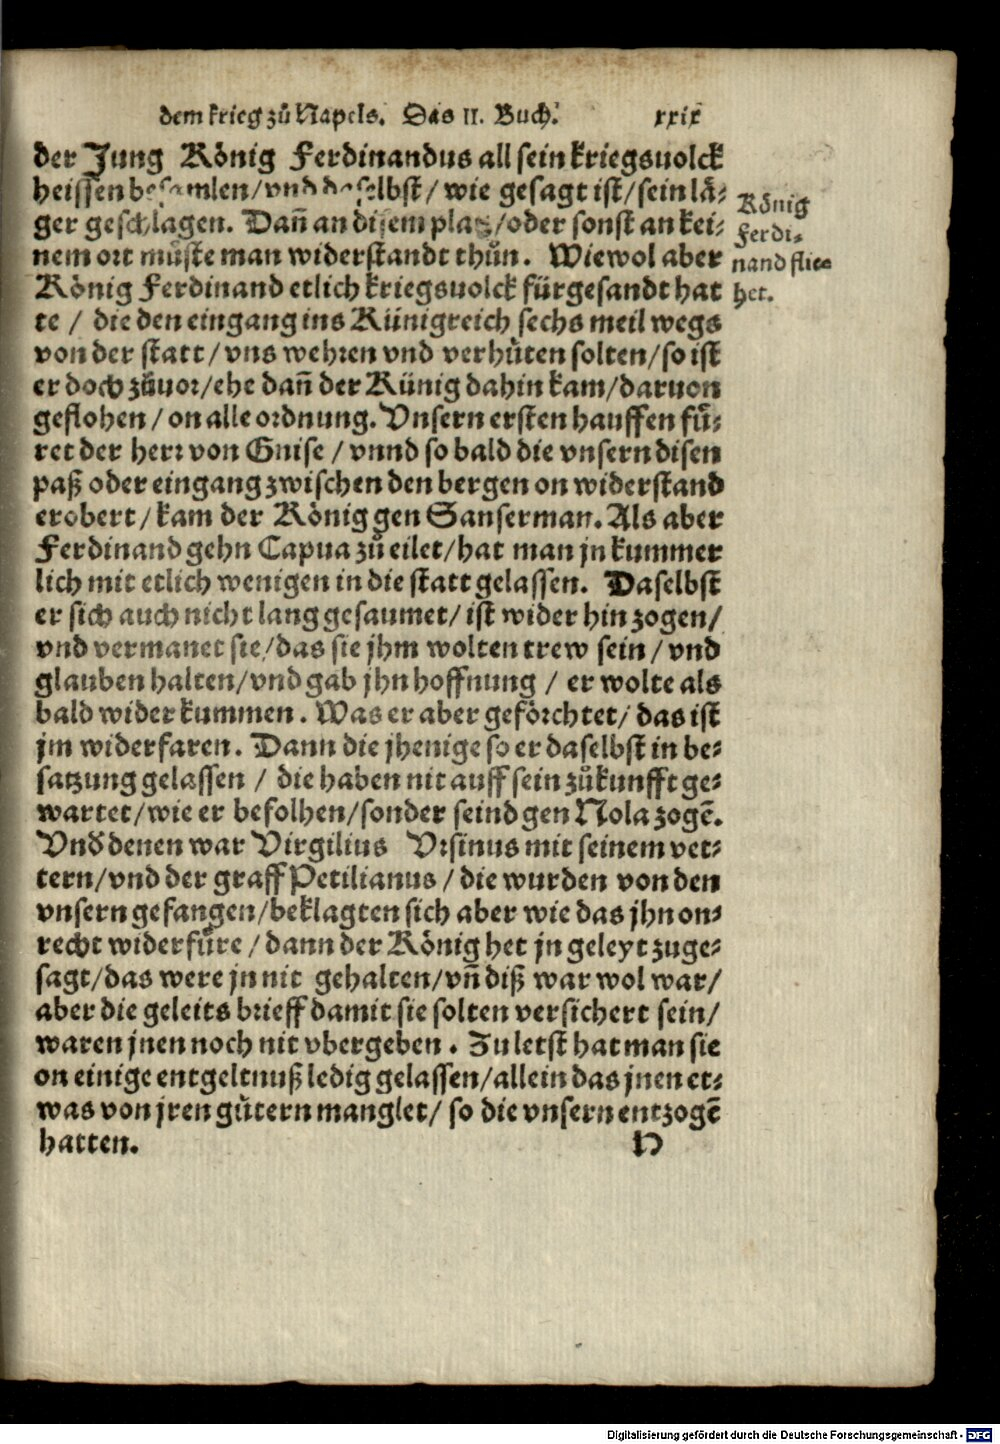 dem krieg zů Napels. Das II. Buch. xxix
der Jung König Ferdinandus all sein kriegsuolck
heissen besamlen/vnd daselbst/wie gesagt ist/sein lå⸗
ger geschlagen. Dañ an disem platz/oder sonst an kei⸗
nem ort můste man widerstandt thůn. Wiewol aber
König Ferdinand etlich kriegsuolck fürgesandt hat
te / die den eingang ins Künigreich sechs meil wegs
von der statt/vns wehren vnd verhůten solten/so ist
er doch zůuor/ehe dañ der Künig dahin kam/daruon
geflohen/on alle ordnung. Vnsern ersten hauffen fů⸗
ret der herr von Guise / vnnd so bald die vnsern disen
paß oder eingang zwischen den bergen on widerstand
erobert/kam der König gen Sanserman. Als aber
Ferdinand gehn Capua zů eilet/hat man jn kummer
lich mit etlich wenigen in die statt gelassen. Daselbst
er sich auch nicht lang gesaumet/ist wider hin zogen/
vnd vermanet sie/das sie jhm wolten trew sein/vnd
glauben halten/vnd gab jhn hoffnung / er wolte als
bald wider kummen. Was er aber geförchtet/das ist
jm widerfaren. Dann die jhenige so er daselbst in be⸗
satzung gelassen / die haben nit auff sein zůkunfft ge⸗
wartet/wie er befolhen/sonder seind gen Nola zogē.
Vnđ denen war Virgilius Vrsinus mit seinem vet⸗
tern/vnd der graff Petilianus/die wurden von den
vnsern gefangen/beklagten sich aber wie das jhn on⸗
recht widerfůre/dann der König het jn geleyt zuge⸗
sagt/das were jn nit gehalten/vñ diß war wol war/
aber die geleits brieff damit sie solten versichert sein/
waren jnen noch nit vbergeben. Zu letst hat man sie
on einige entgeltnuß ledig gelassen/allein das jnen et⸗
was von jren gůtern manglet/so die vnsern entzogē
hatten. H
König
Ferdi⸗
nand flie⸗
het.
Digitalisierung gefördert durch die Deutsche Forschungsgemeinschaft - DFG